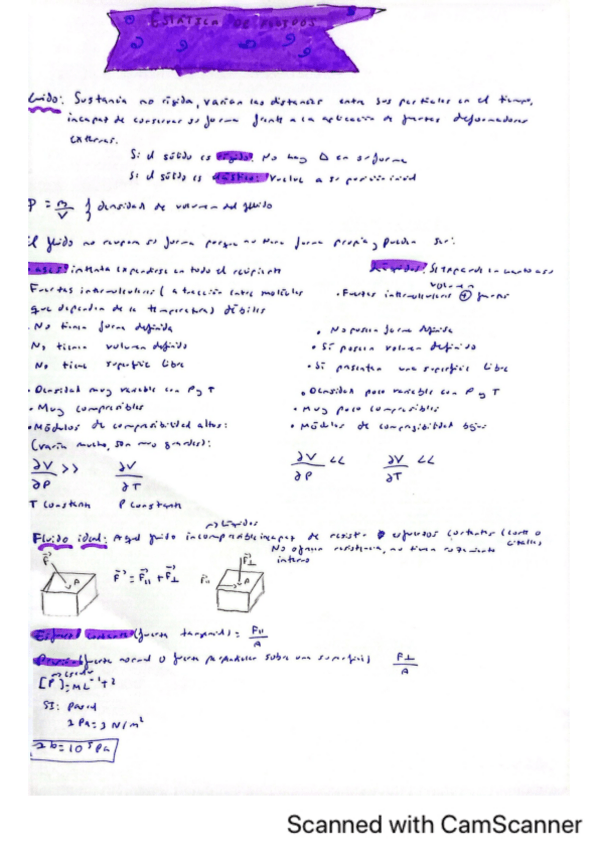 ESTÁTICA DE FLUIDOS
Fluido: Sustancia no rígida, varían las distancias entre sus partículas en el tiempo,
incapaz de conservar su forma frente a la aplicación de fuerzas deformadoras
externas.
Si el sólido es rígido: No hay Δ en su forma
Si el sólido es elástico: Vuelve a su posición inicial
ρ = m/V } densidad de volumen del fluido
El fluido no recupera su forma porque no tiene forma propia y pueden ser:
Gases: intenta expandirse en todo el recipiente
Fuerzas intermoleculares (atracción entre moléculas
que dependen de la temperatura) débiles
· No tienen forma definida
No tienen volumen definido
No tiene superficie libre
· Densidad muy variable con P y T
· Muy compresibles
· Módulos de compresibilidad altos:
(varía mucho, son muy grandes):
∂V/∂P >> ∂V/∂T
T constante P constante
Líquidos: Si
volumen
· Fuerzas intermoleculares ⊕ fuertes
· No poseen forma definida
· Sí poseen volumen definido
· Sí presentan una superficie libre
· Densidad poco variable con P y T
· Muy poco compresibles
· Módulos de compresibilidad bajos
∂V/∂P << ∂V/∂T <<
líquidos
Fluido ideal: Aquel fluido incompresible incapaz de resistir esfuerzos cortantes (corte o
No ofrecen resistencia, no tienen rozamiento
interno
F A F = F∥ + F⊥ F∥ F⊥ A
Esfuerzo cortante (fuerza tangencial) = F∥/A
Presión (fuerza normal o fuerza perpendicular sobre una superficie) F⊥/A
escalar
[P] = ML⁻¹T⁻²
SI: Pascal
1 Pa = 1 N/m²
1b = 10⁵ Pa
Scanned with CamScanner